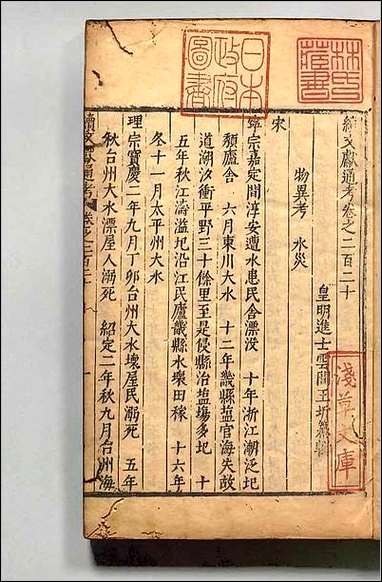 續文獻通考卷之二百二十
皇明進士雲間王圻
物異考 水災
宋
寧宗嘉定間淳安遭水患民舍漂没 十年浙江潮泛圮
頽廬舍 六月東川大水 十二年畿縣盐官海失故
道潮汐衝平野三十餘里至是侵縣治盐塲多圮 十
五年秋江濤溢圮沿江民廬畿縣水壞田稼 十六年
冬十一月太平州大水
理宗寶慶二年九月丁卯台州大水壞屋民溺死 五年
秋台州大水漂屋人溺死 紹定二年秋九月台州海
日本政府圖書
淺草文庫